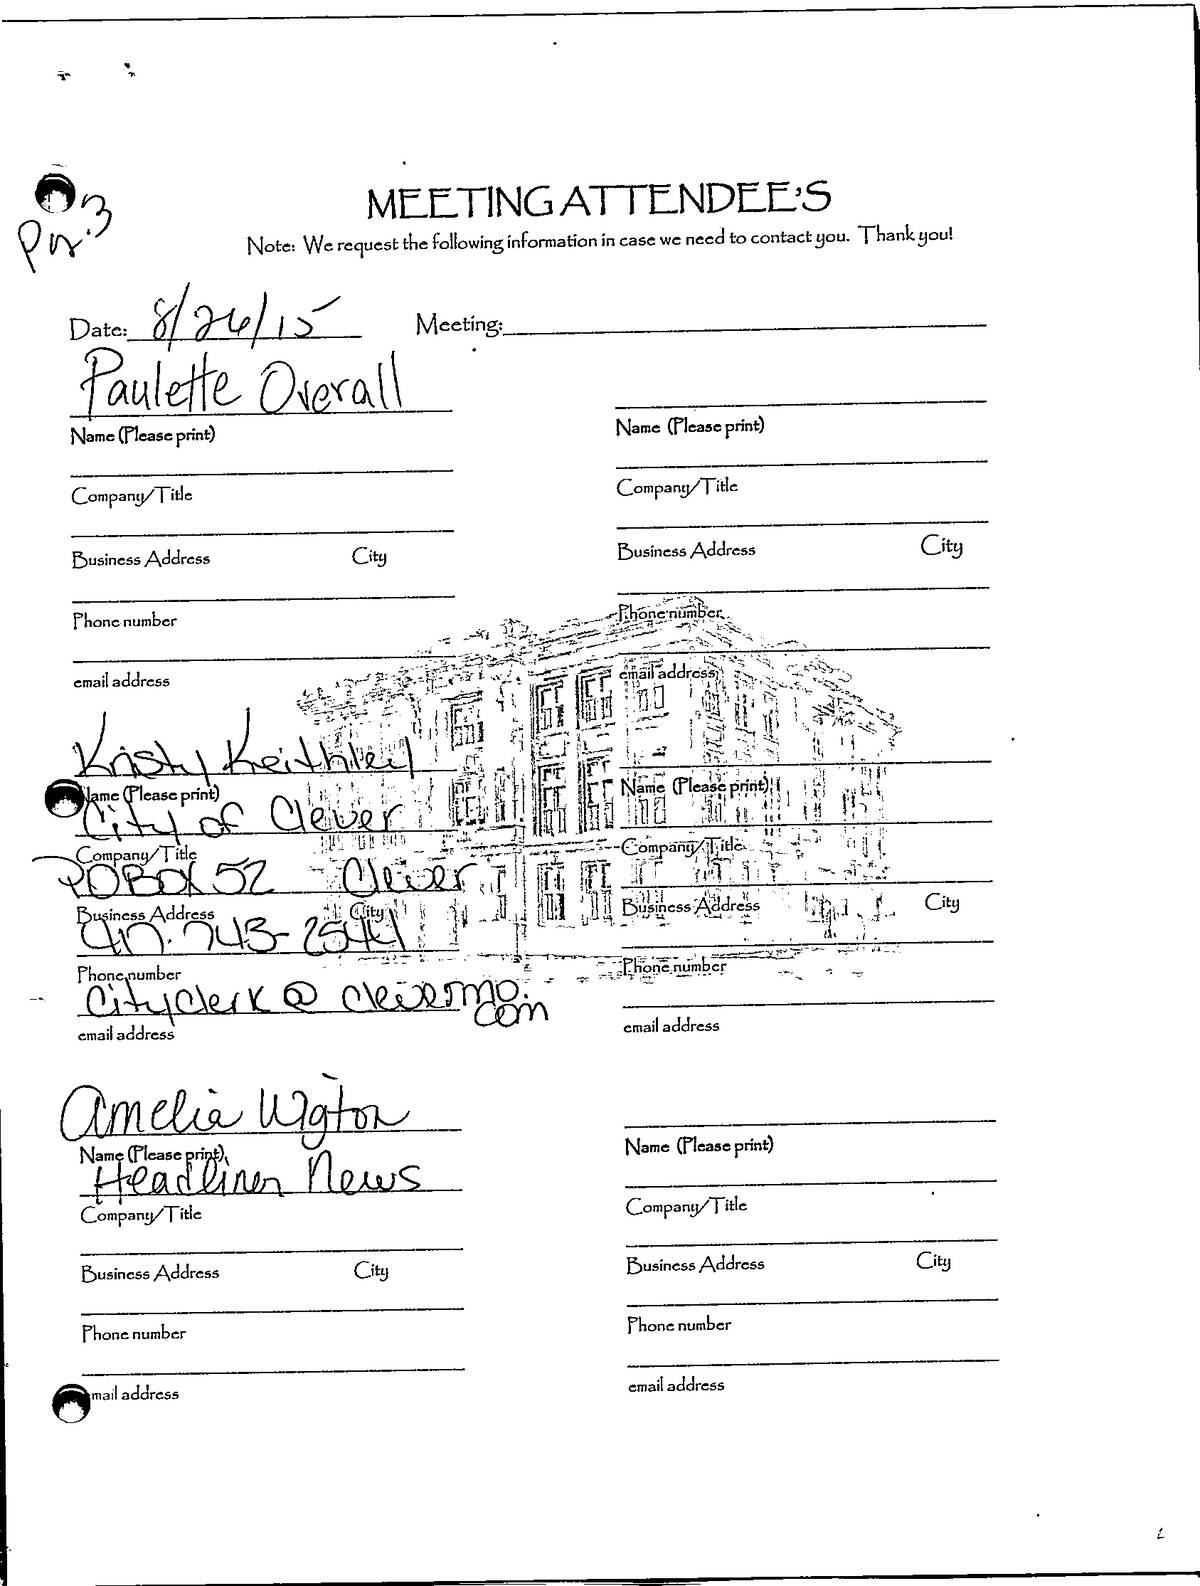 Pg. 3
MEETING ATTENDEE'S
Note: We request the following information in case we need to contact you. Thank you!
Date: 8/26/15 Meeting:
Paulette Overall
Name (Please print) Name (Please print)
Company/Title Company/Title
Business Address City Business Address City
Phone number Phone number
email address email address
Kristy Keithley
Name (Please print) Name (Please print)
City of Clever
Company/Title Company/Title
PO BOX 52 Clever
Business Address City Business Address City
417-743-2544
Phone number Phone number
cityclerk@clevermo.
com
email address email address
Amelia Wigton
Name (Please print) Name (Please print)
Headliner News
Company/Title Company/Title
Business Address City Business Address City
Phone number Phone number
email address email address